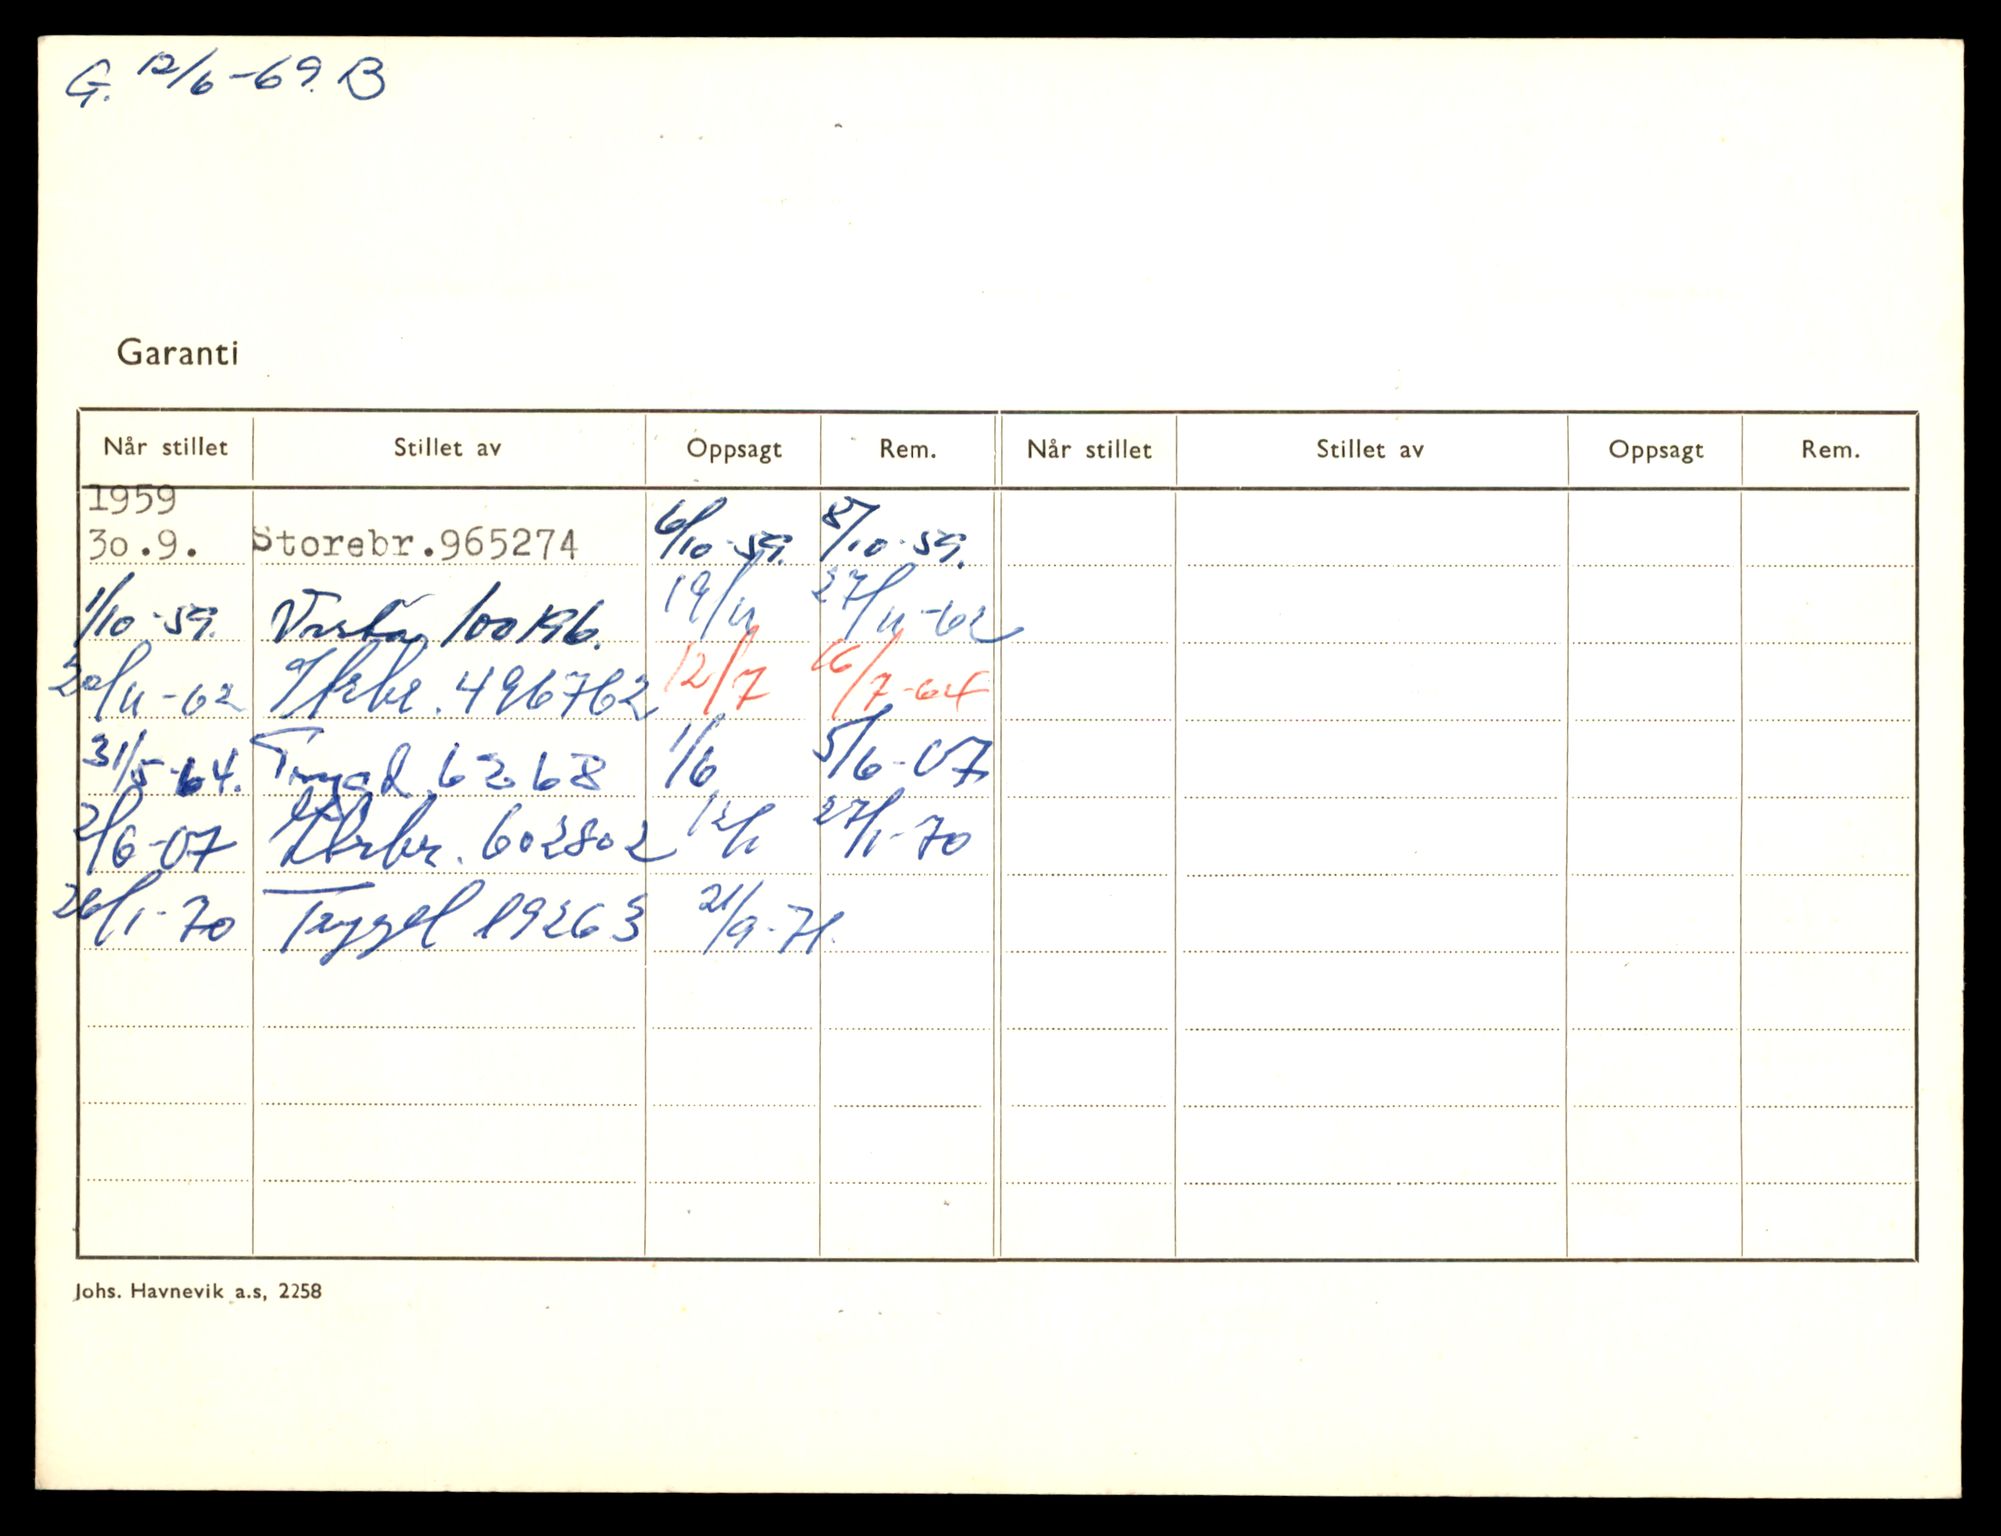 G. 12/6-69. B
Garanti
Når stillet Stillet av Oppsagt Rem. Når stillet Stillet av Oppsagt Rem.
1959
30.9. Storebr.965274 6/10-59. 8/10-59.
1/10-59. 100196. 19/11 27/11-62
20/11-62 496762 12/7 16/7-64
31/5-64. 6268 1/6 5/6-67
2/6-67 602802 12/1 27/1-70
26/1-70 19263 21/9-71.
Johs. Havnevik a.s, 2258